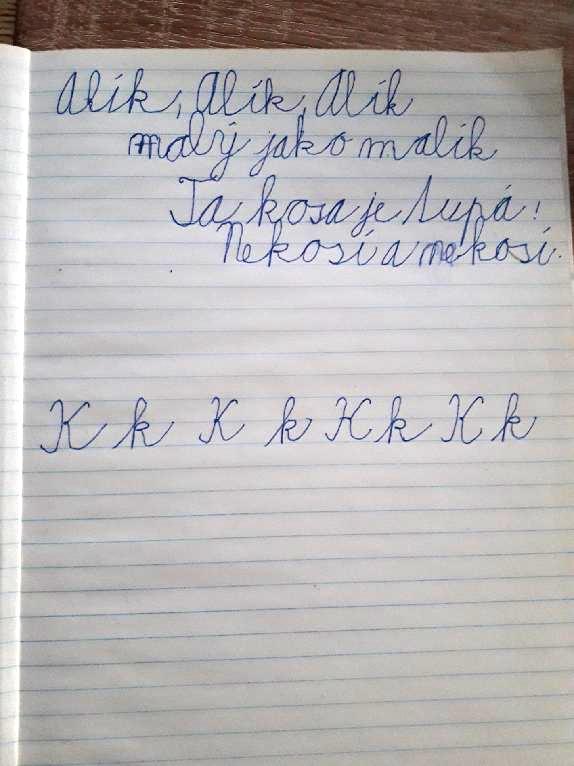 Alík, Alík, Alík
malý jako malík
Ta kosa je tupá!
Nekosí a nekosí.
K k K k K k K k